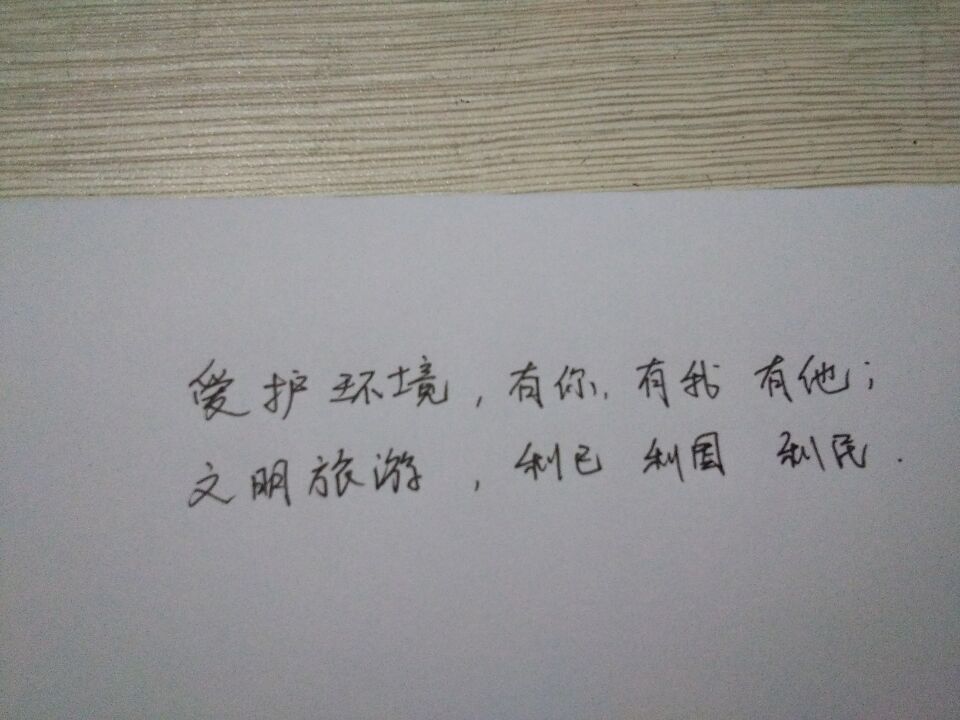 爱护环境，有你，有我 有他；
文明旅游，利己 利国 利民.